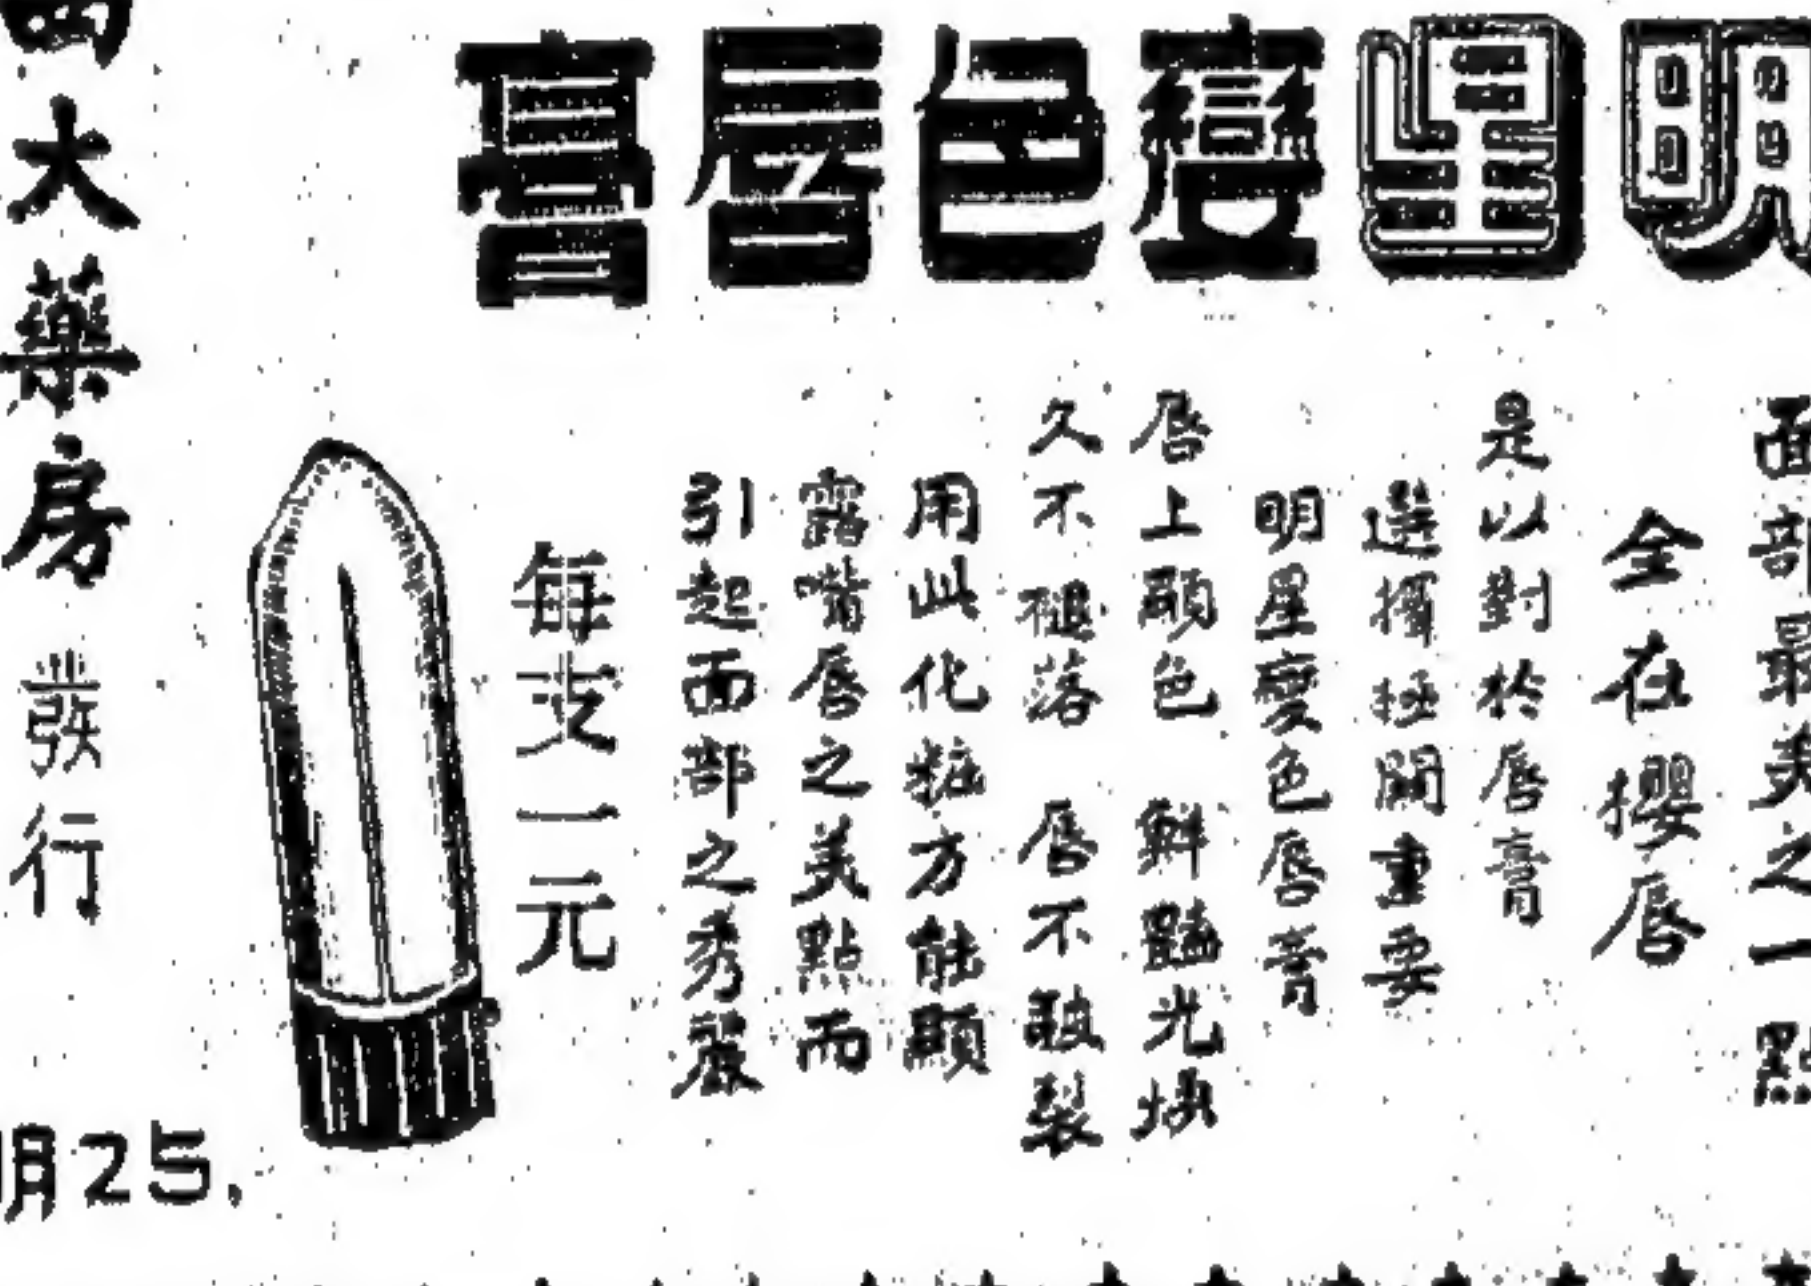 明星變色唇膏
面部最美之一點
全在櫻唇
是以對於唇膏
選擇極關重要
明星變色唇膏
唇上顯色 鮮豔光
久不褪落 唇不皸裂
用此化粧方能顯
露嘴唇之美點而
引起面部之秀麗
每支一元
大藥房發行
明25.